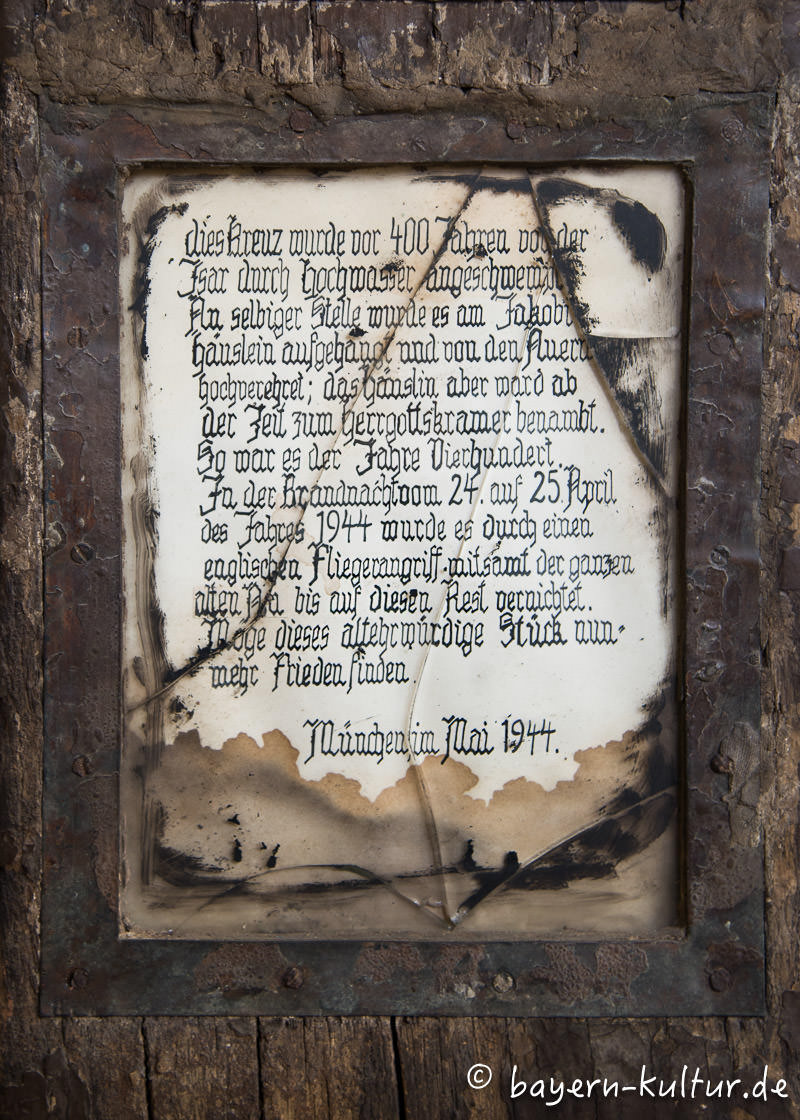 dies Kreuz wurde vor 400 Jahren von der
Isar durch Hochwasser angeschwemmt.
An selbiger Stelle wurde es am Jakobi
häuslein aufgehängt und von den Auern
hochverehret; das Häuslin aber ward ab
der Zeit zum Herrgottskramer benambt.
So war es der Jahre Vierhundert.
In der Brandnacht vom 24. auf 25. April
des Jahres 1944 wurde es durch einen
englischen Fliegerangriff mitsamt der ganzen
alten Au bis auf diesen Rest vernichtet.
Möge dieses altehrwürdige Stück nun-
mehr Frieden finden.
München im Mai 1944.
© bayern-kultur.de